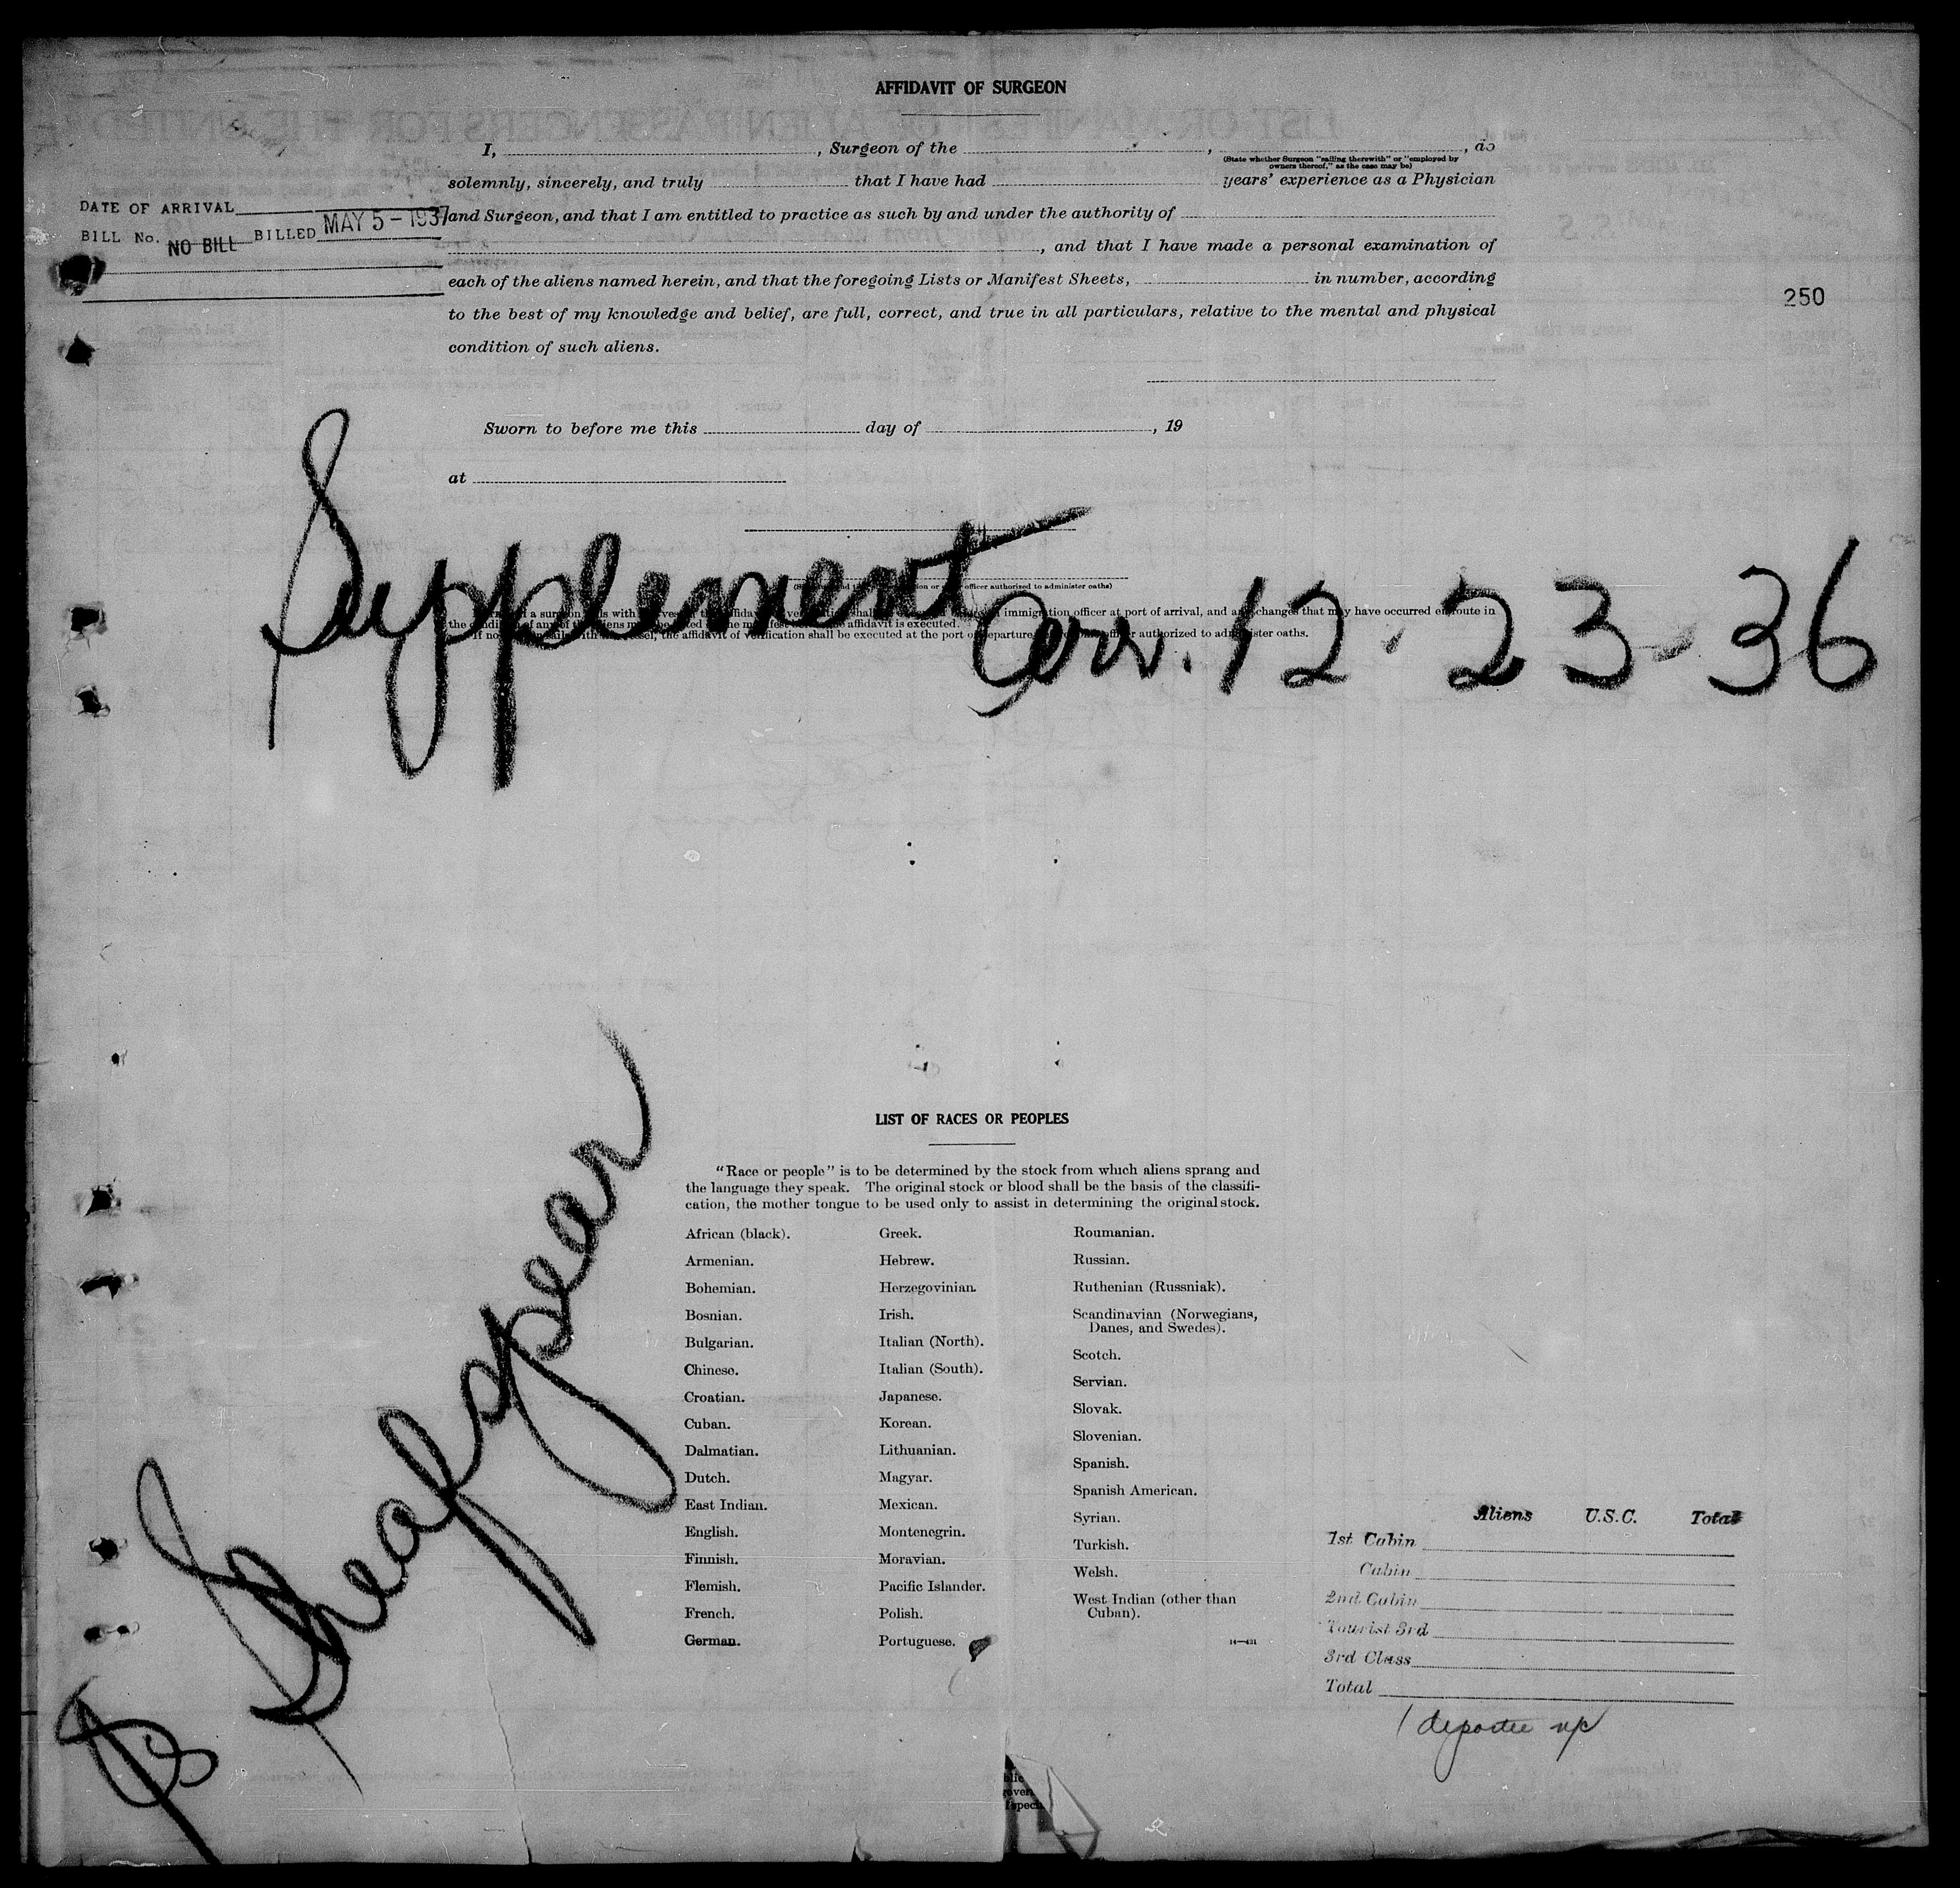 AFFIDAVIT OF SURGEON
I, , Surgeon of the , , do
(State whether Surgeon "sailing therewith" or "employed by
owners thereof," as the case may be)
solemnly, sincerely, and truly that I have had years' experience as a Physician
DATE OF ARRIVAL MAY 5 - 1937
and Surgeon, and that I am entitled to practice as such by and under the authority of
BILL No. NO BILL BILLED
, and that I have made a personal examination of
each of the aliens named herein, and that the foregoing Lists or Manifest Sheets, in number, according
250
to the best of my knowledge and belief, are full, correct, and true in all particulars, relative to the mental and physical
condition of such aliens.
Sworn to before me this day of , 19
at
Supplement arr. 12-23-36
officer authorized to administer oaths)
immigration officer at port of arrival, and any changes that may have occurred en route in
affidavit is executed.
the affidavit of verification shall be executed at the port of departure authorized to administer oaths.
LIST OF RACES OR PEOPLES
"Race or people" is to be determined by the stock from which aliens sprang and
the language they speak. The original stock or blood shall be the basis of the classifi-
cation, the mother tongue to be used only to assist in determining the original stock.
African (black).
Armenian.
Bohemian.
Bosnian.
Bulgarian.
Chinese.
Croatian.
Cuban.
Dalmatian.
Dutch.
East Indian.
English.
Finnish.
Flemish.
French.
German.
Greek.
Hebrew.
Herzegovinian.
Irish.
Italian (North).
Italian (South).
Japanese.
Korean.
Lithuanian.
Magyar.
Mexican.
Montenegrin.
Moravian.
Pacific Islander.
Polish.
Portuguese.
Roumanian.
Russian.
Ruthenian (Russniak).
Scandinavian (Norwegians,
Danes, and Swedes).
Scotch.
Servian.
Slovak.
Slovenian.
Spanish.
Spanish American.
Syrian.
Turkish.
Welsh.
West Indian (other than
Cuban).
14—431
Aliens U.S.C. Total
1st Cabin
Cabin
2nd Cabin
Tourist 3rd
3rd Class
Total
1 deportee